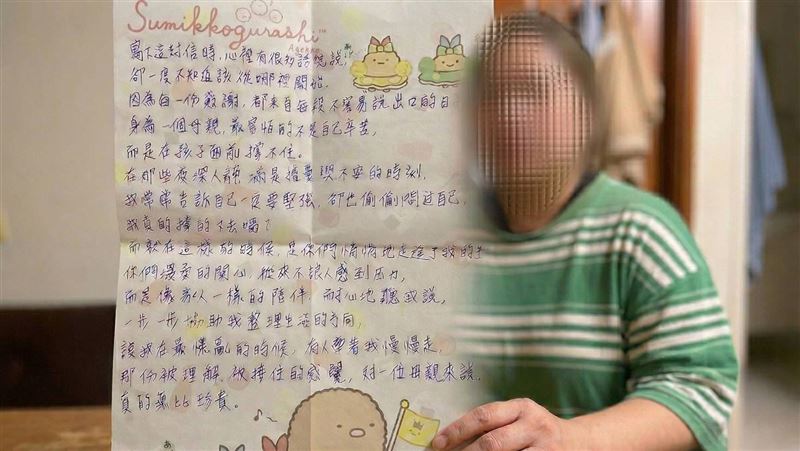 Sumikkogurashi™
寫下這封信時,心裡有很多話想說,
卻一度不知道該從哪裡開始.
因為每一份感謝,都來自每段不容易說出口的日
身為一個母親,最害怕的不是自己辛苦,
而是在孩子面前撐不住。
在那些夜深人靜 滿是擔憂與不安的時刻,
我常常告訴自己一定要堅強,卻也偷偷問过自己,
我真的撐的下去嗎?
而就在這樣的時候,是你們悄悄地走進了我的
你們溫柔的關心,從來不讓人感到压力,
而是像家人一樣的陪伴,耐心地聽我說,
一步一步協助我整理生活的方向,
讓我在最慌亂的時候,有人牽著我慢慢走,
那份被理解 被接住的感覺,對一位母親來說,
真的無比珍貴。